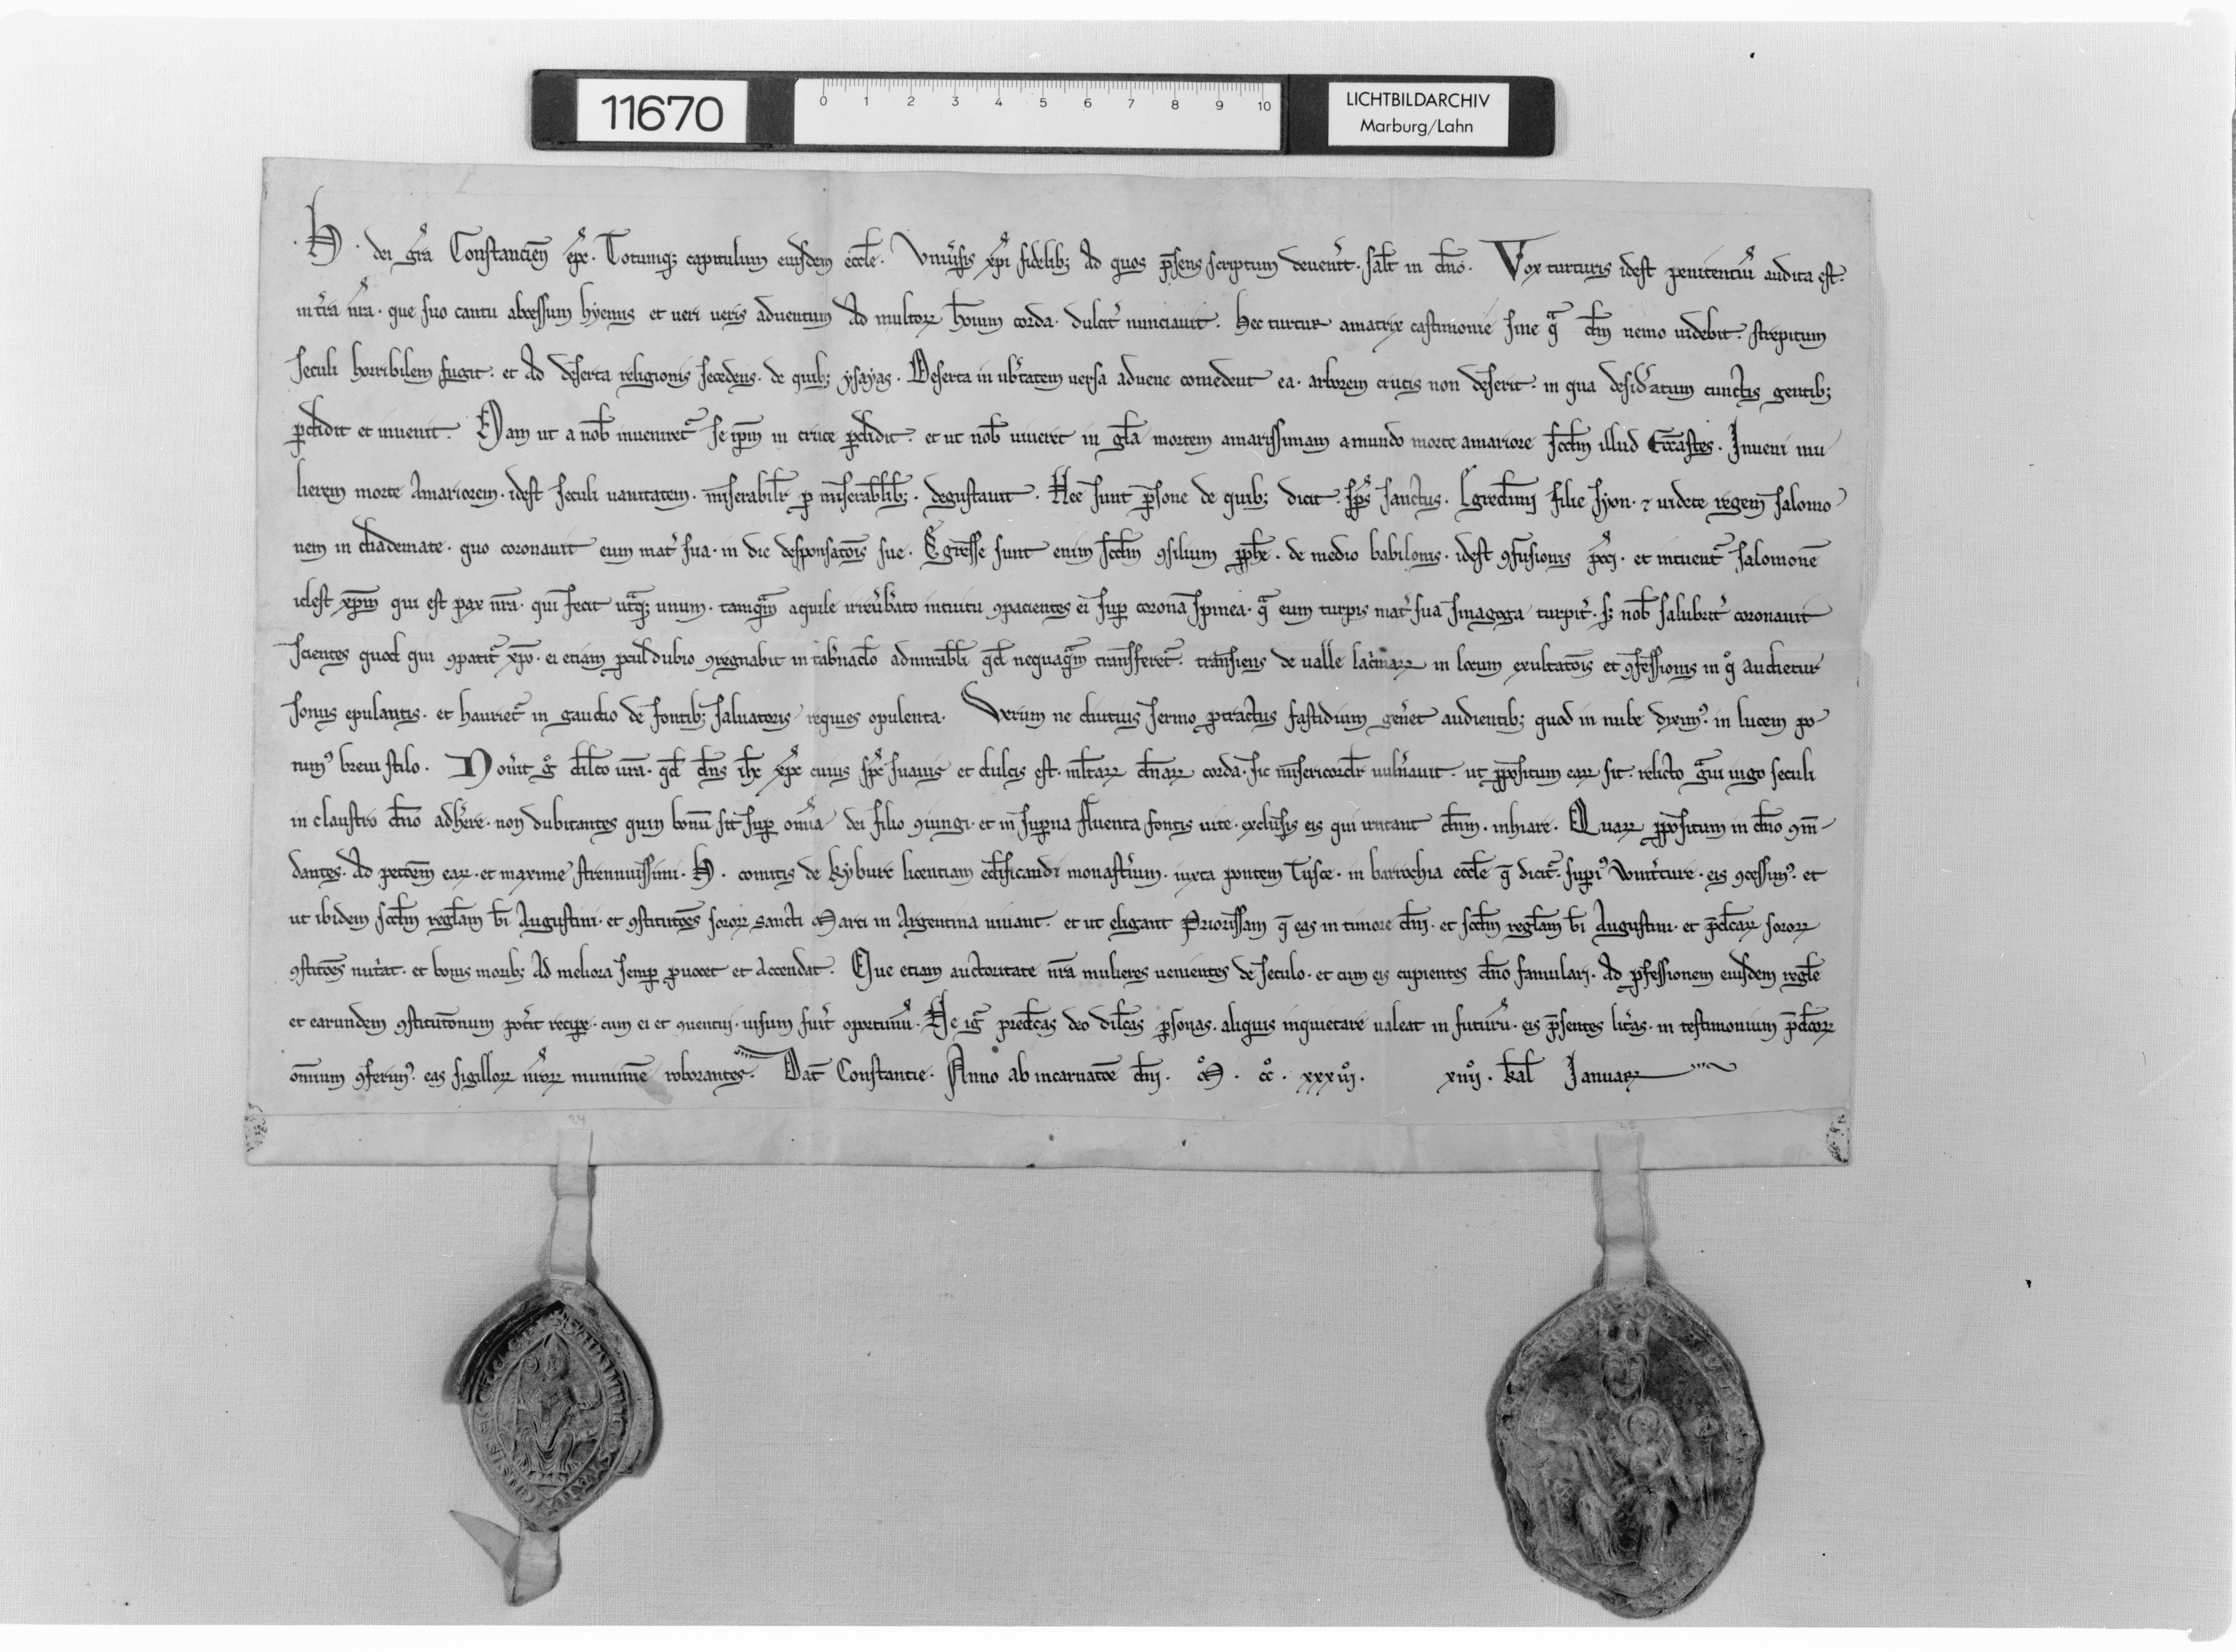 11670
0 1 2 3 4 5 6 7 8 9 10
LICHTBILDARCHIV
Marburg/Lahn
·H· dei gr̄a Constancien̄ ep̄c. Totumq; capitulum eiusdem eccl̄e. Vniu̓sis xp̄i fidelib; ad quos p̄sens scriptum deuen̓it. sal̄t in dn̄o. Vox turturis idest penitenciū audita est.
in tr̄a nr̄a. que suo cantu abcessum hyemis et ueri ueris aduentum ad multoꝝ ho̅ium corda. dulcit̓ nunciauit. hec turtur amatrix castimonie sine qᵃ dm̄ nemo uidebit. strepitum
seculi horribilem fugit. et ad deserta religionis secedens. de quib; ysayas. Deserta in ub̓tatem uersa aduene comedent ea. arborem crucis non deserit. in qua desid̓atum cunctis gentib;
ꝑdidit et inuenit. Nam ut a nob̄ inueniret᷑ se ip̄m in cruce ꝑdidit. et ut nob̄ uiueret in gl̄a mortem amarissimam a mundo morte amariore scd̄m illud Ecc̄astes. Inueni mu
lierem morte amariorem. idest seculi uanitatem. miserabilr̄ ꝑ miserabilib;. degustauit. Hee sunt ꝑsone de quib; dicit. sp̄s sanctus. Egredimi̅j filie syon. ⁊ uidete regem salomo
nem in diademate. quo coronauit eum mat̓ sua. in die desponsatōis sue. Egresse sunt enim scd̄m ꝯsilium ꝓph̄e. de medio babilonis. idest ꝯfusionis pc̄ci. et intuent᷑ salomonē
idest xp̄m qui est pax nr̄a. qui fecit utᵃq; unum. tamqᵃm aquile irreu̓b̓ato intuitu ꝯpacientes ei suꝑ coronā spineā. qᵃ eum turpis mat̓ sua sinagoga turpit̓. s; nob̄ salubrit̓ coronauit
scientes quod qui ꝯpatit᷑ xp̄o. ei etiam ꝓcul dubio ꝯregnabit in tab̓nacl̄o admirabl̄i qd̄ nequaqᵃm transferet᷑. transiens de ualle lac̓maꝝ in locum exultatōis et ꝯfessionis in qº audietur
sonus epulantis. et hauriet᷑ in gaudio de fontib; saluatoris requies opulenta. Verum ne diutius sermo ꝓtractus fastidium gen̓et audientib; quod in nube diximꝰ. in lucem po
nimꝰ breui stilo. Nou̓it gº dil̄co ur̄a. qd̄ dn̄s ih̄c xp̄c cuius sp̄c suauis et dulcis est. ml̄taꝝ dn̄aꝝ corda. sic misericordr̄ uuln̓auit. ut ꝓpositum eaꝝ sit. relicto gᵃui iugo seculi
in claustro dn̄o adh̓ere. non dubitantes quin bonū sit suꝑ om̄ia dei filio ꝯiungi. et in suꝑna fluenta fontis uite. exclusis eis qui irritant dn̄m. inhiare. Quaꝝ ꝓpositum in dn̄o ꝯm̄
dantes. ad petitōem eaꝝ. et maxime strennuissimi. H. comitis de kyburc licentiam edificandi monast̓ium. iuxta pontem Tusce. in barrochia eccl̄e q̄ dicit᷑. suꝑiꝰ Wint̓ture. eis ꝯcessimꝰ. et
ut ibidem scd̄m regl̄am b̄i Augustini. et ꝯstitutōes soroꝝ sancti Marci in Argentina uiuant. et ut eligant Priorissam q̄ eas in timore dn̄i. et scd̄m regl̄am b̄i Augustini. et p̄dc̄aꝝ soroꝝ
ꝯstitōes nut̓at. et bonis morib; ad meliora semꝑ ꝓuocet et accendat. Que etiam auctoritate nr̄a mulieres uenientes de seculo. et cum eis cupientes dn̄o famulari. ad ꝓfessionem eiusdem regl̄e
et earundem ꝯstitutōnum pot̓it reciꝑe. cum ei et ꝯuentui. uisum fu̓it oportunū. Ne igᷓ predc̄as deo dil̄cas ꝑsonas. aliquis inquietare ualeat in futurū. eis p̄sentes lit̓as. in testimonium p̄dc̄oꝝ
om̄ium ꝯferimꝰ. eas sigilloꝝ nr̄oꝝ munimīe roborantes. Dat̄ Constantie. Anno ab incarnatōe dn̄i. Mº. ccº. xxxiijº. xiiijº. kal̄ Januaꝝ